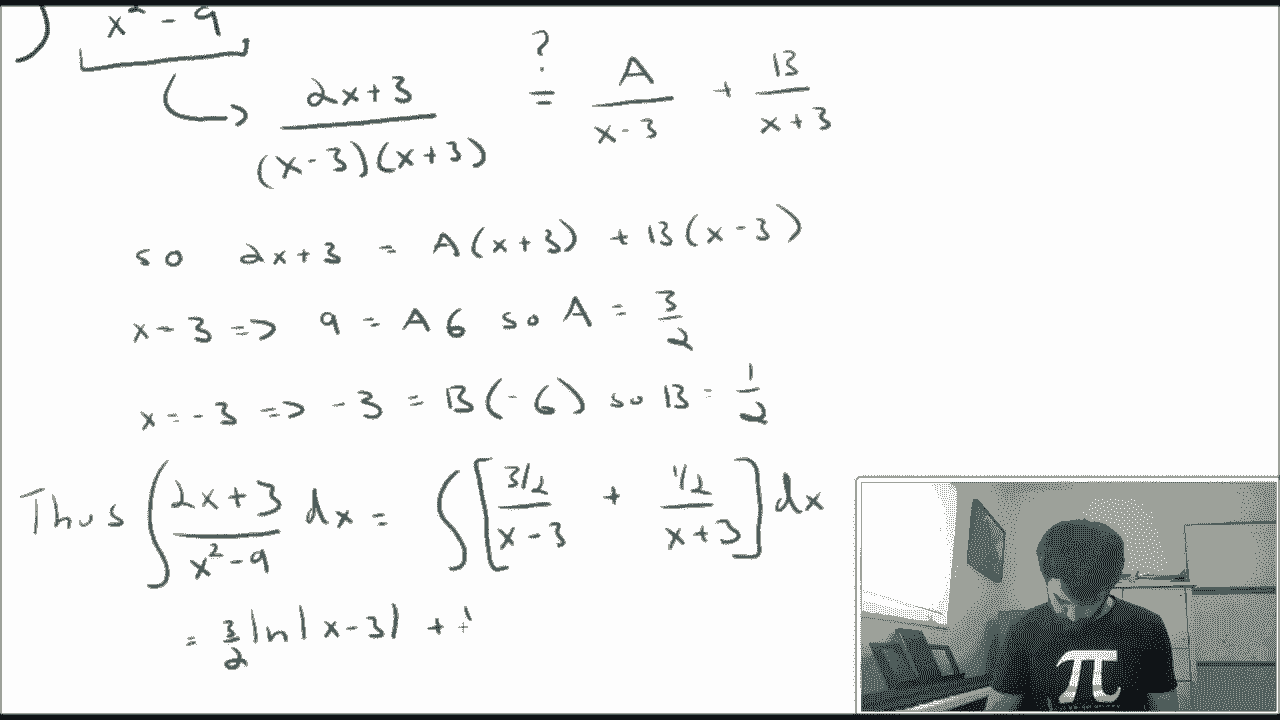 ∫ x² - 9
2x+3 / (x-3)(x+3) ?= A / x-3 + B / x+3
so 2x+3 = A(x+3) + B(x-3)
x=3 => 9 = A6 so A = 3/2
x=-3 => -3 = B(-6) so B = 1/2
Thus ∫ 2x+3 / x²-9 dx = ∫ [ 3/2 / x-3 + 1/2 / x+3 ] dx
= 3/2 ln|x-3| +
π